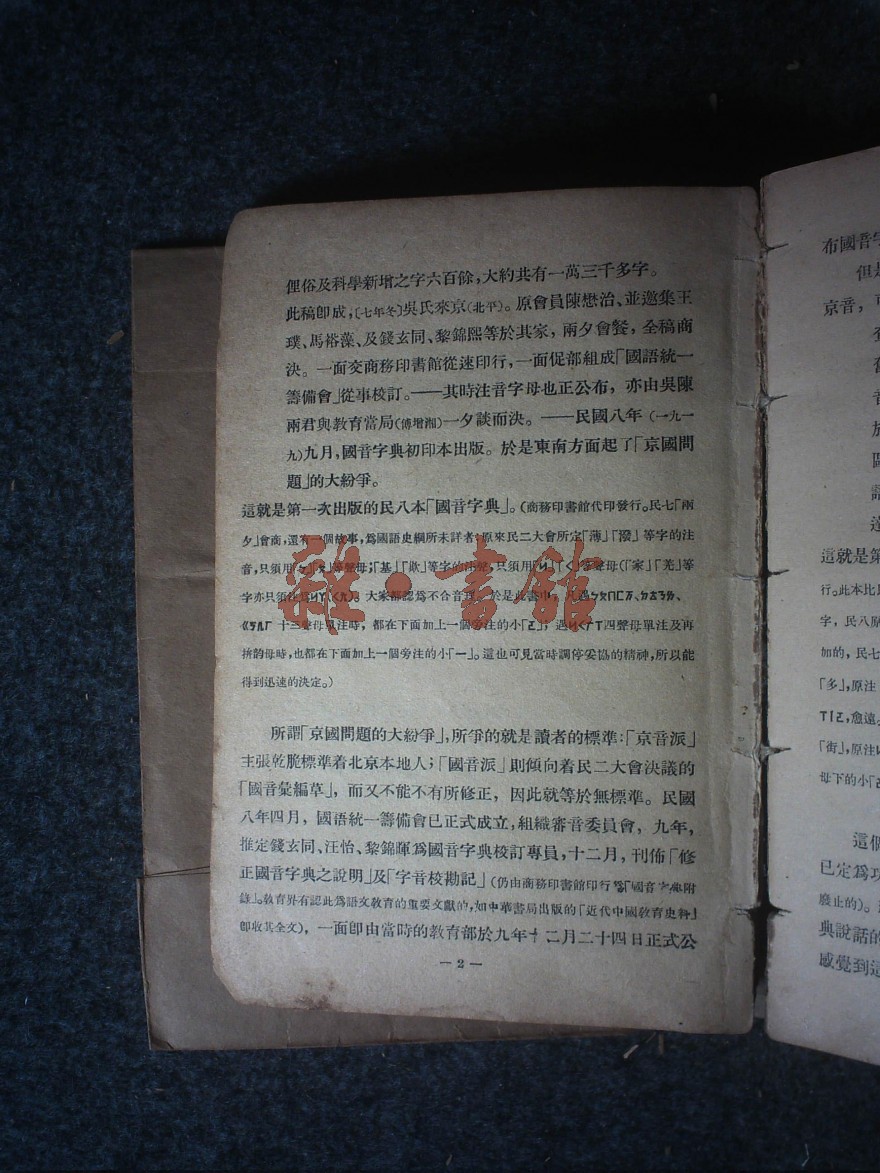 俚俗及科學新增之字六百餘，大約共有一萬三千多字。
此稿卽成，〔七年冬〕吳氏來京（北平）。原會員陳懋治、並邀集王
璞、馬裕藻、及錢玄同、黎錦熙等於其家，兩夕會餐，全稿商
決。一面交商務印書館從速印行，一面促部組成「國語統一
籌備會」從事校訂。——其時注音字母也正公布，亦由吳陳
兩君與教育當局（傅增湘）一夕談而決。——民國八年（一九一
九）九月，國音字典初印本出版。於是東南方面起了「京國問
題」的大紛爭。
這就是第一次出版的民八本「國音字典」。（商務印書館代印發行。民七「兩
夕」會商，還有一個故事，爲國語史綱所未詳者：原來民二大會所定「薄」「撥」等字的注
音，只須用ㄅㄆ等聲母；「基」「欺」等字的注聲，只須用「ㄐ」「ㄑ」等聲母（「家」「羌」等
字亦只須注爲ㄐㄚㄑㄤ）。大家都認爲不合音理。於是此書中，凡遇ㄅㄆㄇㄈ万、ㄉㄊㄋㄌ、
ㄍㄎ兀ㄏ十三聲母單注時，都在下面加上一個旁注的小「ㄛ」，遇ㄐㄑㄒ四聲母單注及再
拚韵母時，也都在下面加上一個旁注的小「一」。這也可見當時調停妥協的精神，所以能
得到迅速的決定。）
所謂「京國問題的大紛爭」，所爭的就是讀者的標準：「京音派」
主張乾脆標準着北京本地人；「國音派」則傾向着民二大會決議的
「國音彙編草」，而又不能不有所修正，因此就等於無標準。民國
八年四月，國語統一籌備會已正式成立，組織審音委員會，九年，
推定錢玄同、汪怡、黎錦暉爲國音字典校訂專員，十二月，刊佈「修
正國音字典之說明」及「字音校勘記」（仍由商務印書館印行爲「國音字典附
錄」。敎育界有認此爲語文敎育的重要文獻的，如中華書局出版的「近代中國敎育史料」
卽收其全文），一面卽由當時的敎育部於九年十二月二十四日正式公
— 2 —
布國音字
但是
京音，可
這就是第
行。此本比
字，民八原
加的，民七
「多」，原注
ㄒㄧㄛ，愈遠。
「街」，原注
母下的小「
這個
已定爲功
廢止的）。
典說話的
感覺到這
雜·書館